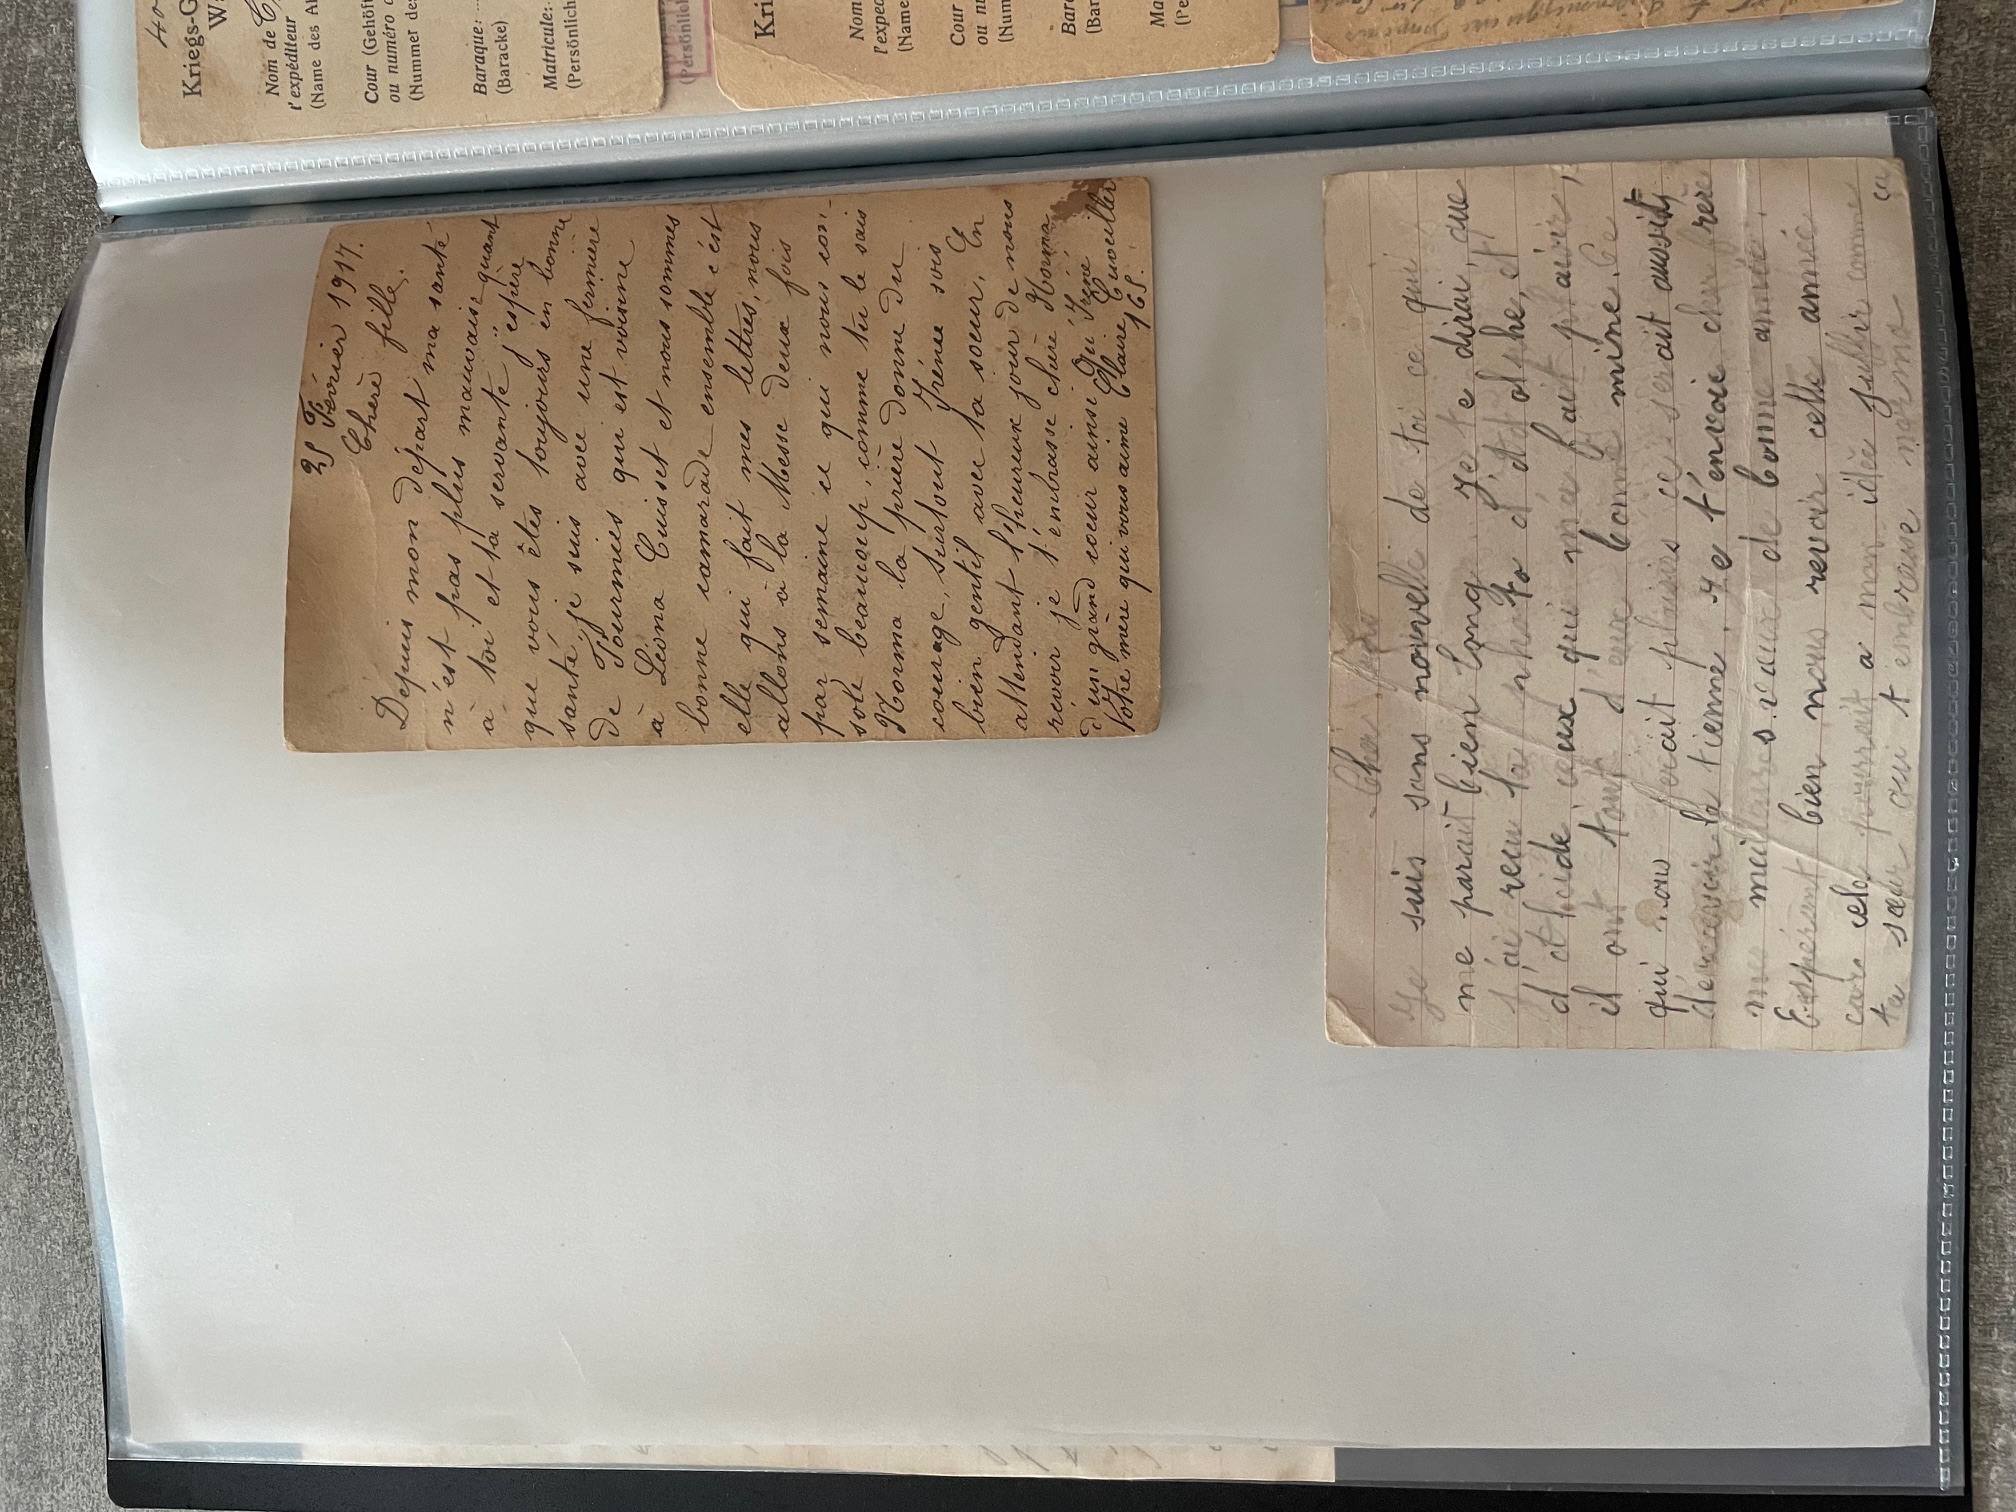 40
Kriegs-G
Nom de
l'expéditeur
(Name des Ab
Cour (Gehöft
ou numéro
(Nummer des
Baraque:
(Baracke)
Matricule:
(Persönlich
(Persönlich
Kri
Nom
l'expéd
(Name
Cour
ou nu
(Num
Bar
(Bar
Ma
(Pe
25 Février 1917.
Chère fille.
Depuis mon départ ma santé
n'est pas plus mauvaise quant
à toi et ta servante j'espère
que vous êtes toujours en bonne
santé, je suis avec une fermière
de Fourmies qui est voisine
à Léona Cuisset et nous sommes
bonne camarade ensemble c'est
elle qui fait mes lettres, nous
allons à la Messe deux fois
par semaine ce qui nous con-
sole beaucoup, comme tu le sais
Norma la prière donne du
courage, surtout Irénée sois
bien gentil avec ta soeur, En
attendant l'heureux jour de nous
revoir je t'embrasse chère Norma
d'un grand coeur ainsi qu'Iréné
Votre mère qui vous aime Claire Cuvellier
165.
Cher
Je suis sans nouvelle de toi ce qui
me parait bien long Je te dirai que
j'ai recu la photo d'
d'Alcide ceux qui m'a fait plaisir,
il ont tout d'eux bonne mine. Ce
qui nou ferait plaisir ce serait aussit
de recevoir la tienne. Je t'envoie cher frère
me meilleures vaux de bonne année.
Espérant bien nous revoir cette année
car cela pourrait a mon idée suffir comme
ça
ta sœur qui t embrasse norma